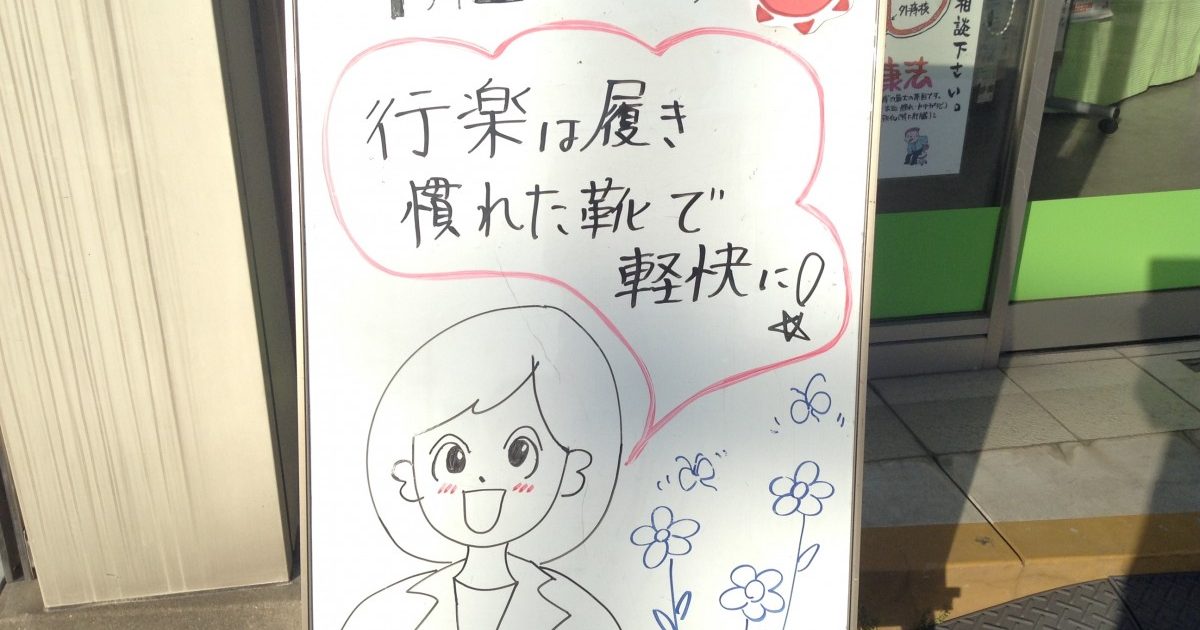 行楽は履き
慣れた靴で
軽快に！
相談下さい。
外痔核
康法